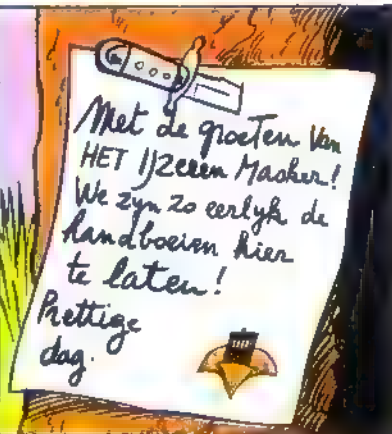 Met de groeten van
HET IJzeren Masker!
We zyn zo eerlyk de
handboeien hier
te laten!
Prettige
dag.